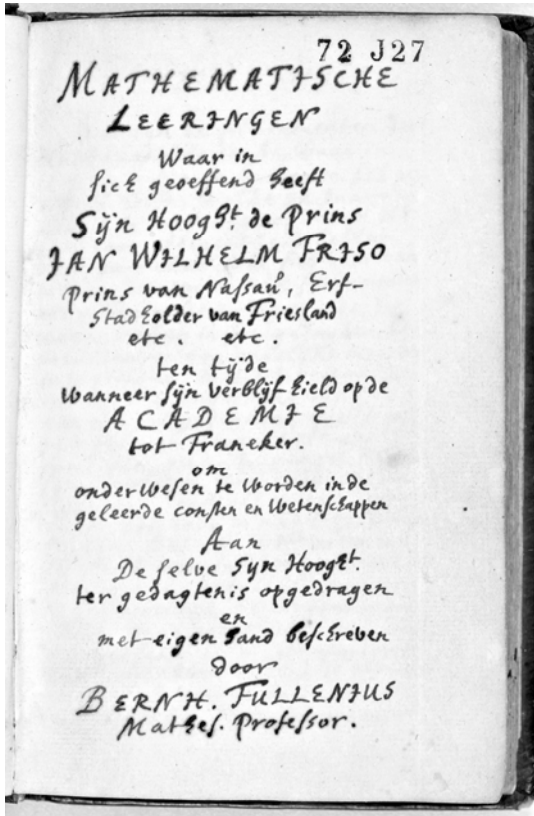 72 J27
MATHEMATISCHE
LEERINGEN
Waar in
sich geoeffend heeft
Sÿn Hooght. de Prins
JAN WILHELM FRISO
Prins van Nassau, Erf-
Stadholder van Friesland
etc. etc.
ten tÿde
wanneer sÿn verblÿf hield op de
ACADEMIE
tot Franeker.
om
onderwesen te worden in de
geleerde consten en wetenschappen
Aan
De selve Syn Hooght.
ter gedagtenis opgedragen
en
met eigen hand beschreven
door
BERNH. FULLENIUS
Mathes. Professor.